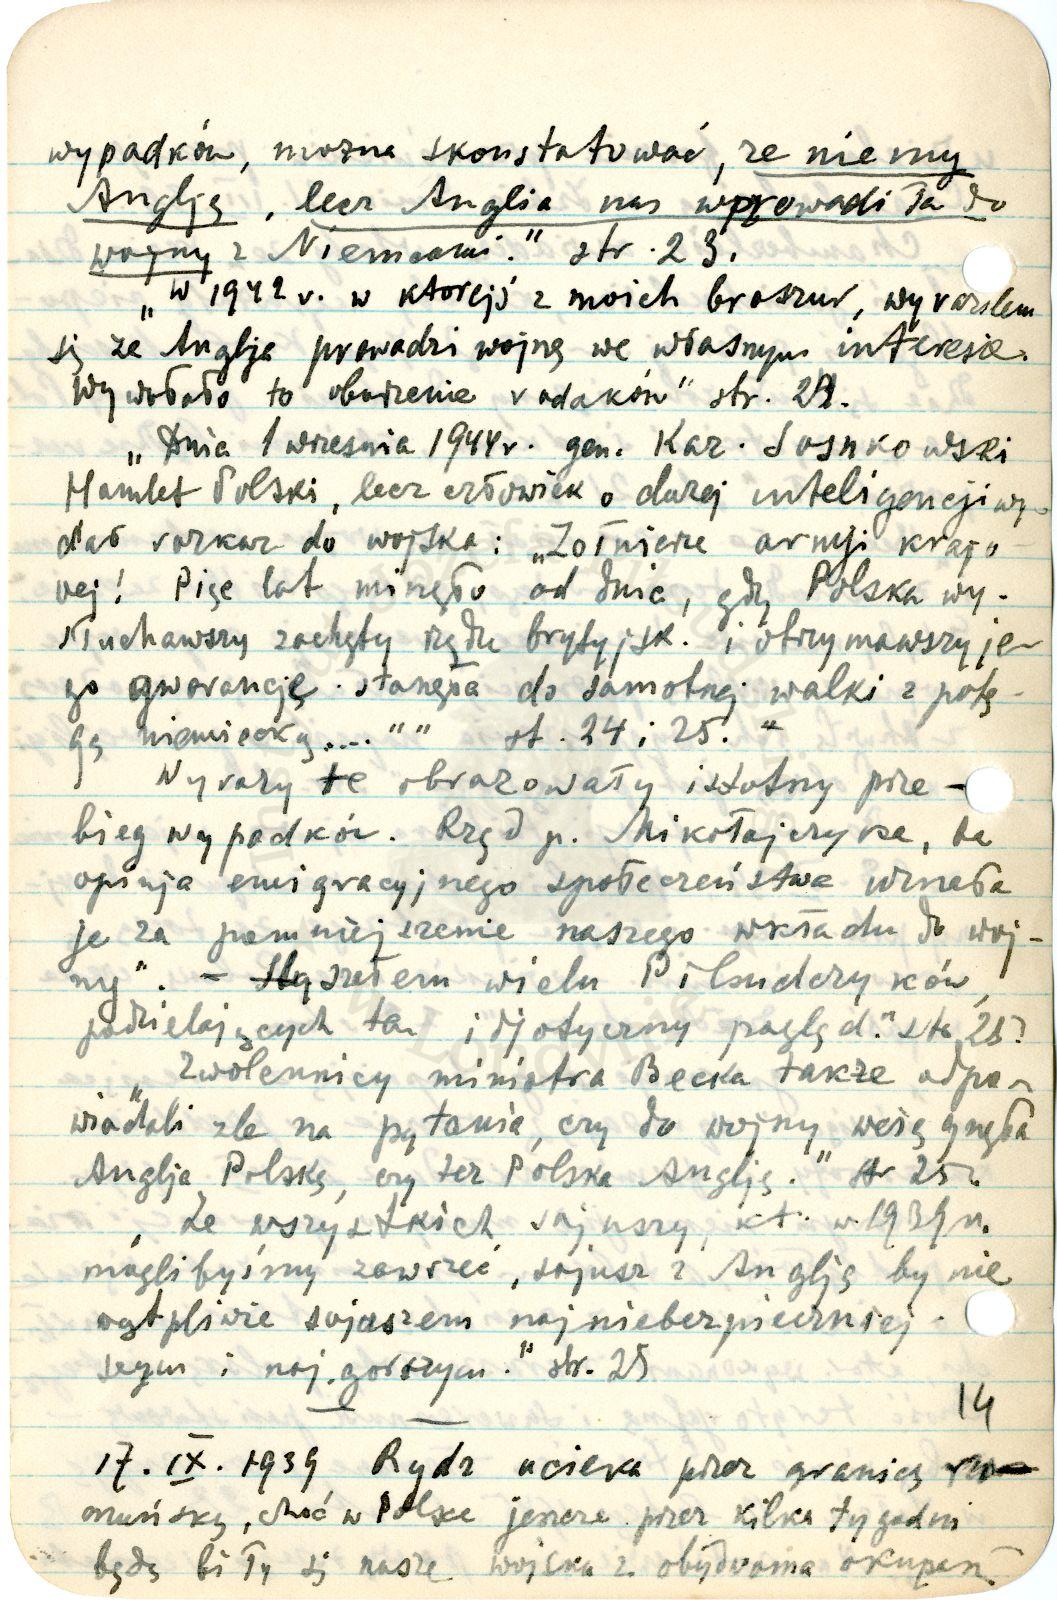 wypadków, można skonstatować, że nie my
Anglję, lecz Anglia nas wprowadziła do
wojny z Niemcami." str. 23.
„W 1942 r. w którejś z moich broszur, wyraziłem
się że Anglja prowadzi wojnę we własnym interesie.
Wywołało to oburzenie rodaków" str. 24.
„Dnia 1 września 1944 r. gen. Kaz. Sosnkowski
Hamlet Polski, lecz człowiek o dużej inteligencji wy-
dał rozkaz do wojska: „Żołnierze armji krajo-
wej! Pięć lat minęło od dnia, gdy Polska wy-
słuchawszy zachęty rządu brytyjsk. i otrzymawszy je-
go gwarancję stanęła do samotnej walki z potę-
gą niemiecką...." " st. 24 i 25. "
Wyrazy te obrazowały istotny prze-
bieg wypadków. Rząd p. Mikołajczyka, ta
opinja emigracyjnego społeczeństwa uznała
je za pomniejszenie naszego wkładu do woj-
ny". - Słyszałem wielu Piłsudczyków,
podzielających ten idjotyczny pogląd." str 25
„Zwolennicy ministra Becka także odpo-
wiadali źle na pytanie, czy do wojny wciągnęła
Anglja Polskę, czy też Polska Anglję." str 25.
„Ze wszystkich sojuszy, kt. w 1939 r.
moglibyśmy zawrzeć, sojusz z Anglją był nie
wątpliwie sojuszem najniebezpieczniej-
szym i najgorszym." str. 25
14
17. IX. 1939 Rydz ucieka przez granicę ru-
muńską, choć w Polsce jeszcze przez kilka tygodni
będą biły się nasze wojska z obydwoma okupant